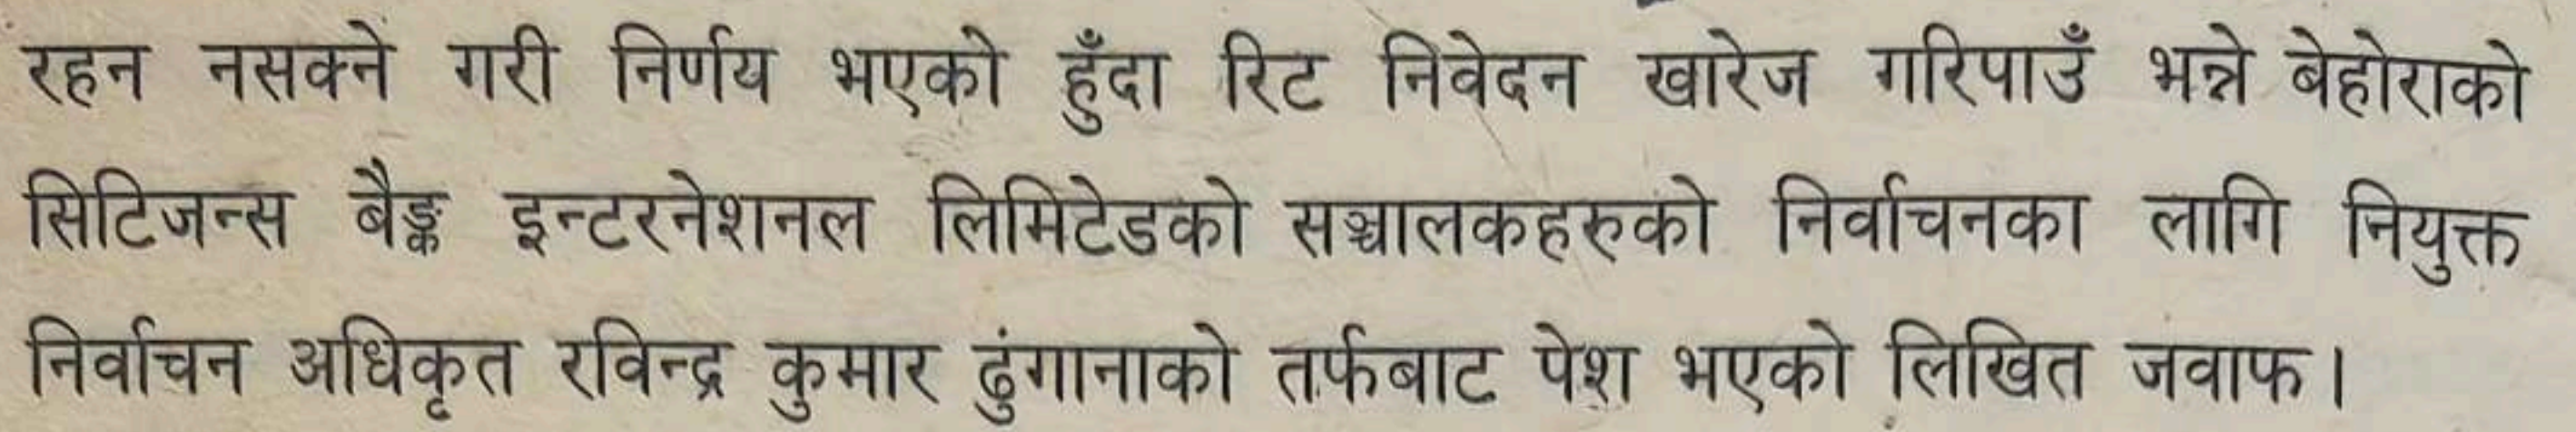 रहन नसक्ने गरी निर्णय भएको हुँदा रिट निवेदन खारेज गरिपाउँ भन्ने बेहोराको
सिटिजन्स बैङ्क इन्टरनेशनल लिमिटेडको सञ्चालकहरुको निर्वाचनका लागि नियुक्त
निर्वाचन अधिकृत रविन्द्र कुमार ढुंगानाको तर्फबाट पेश भएको लिखित जवाफ।